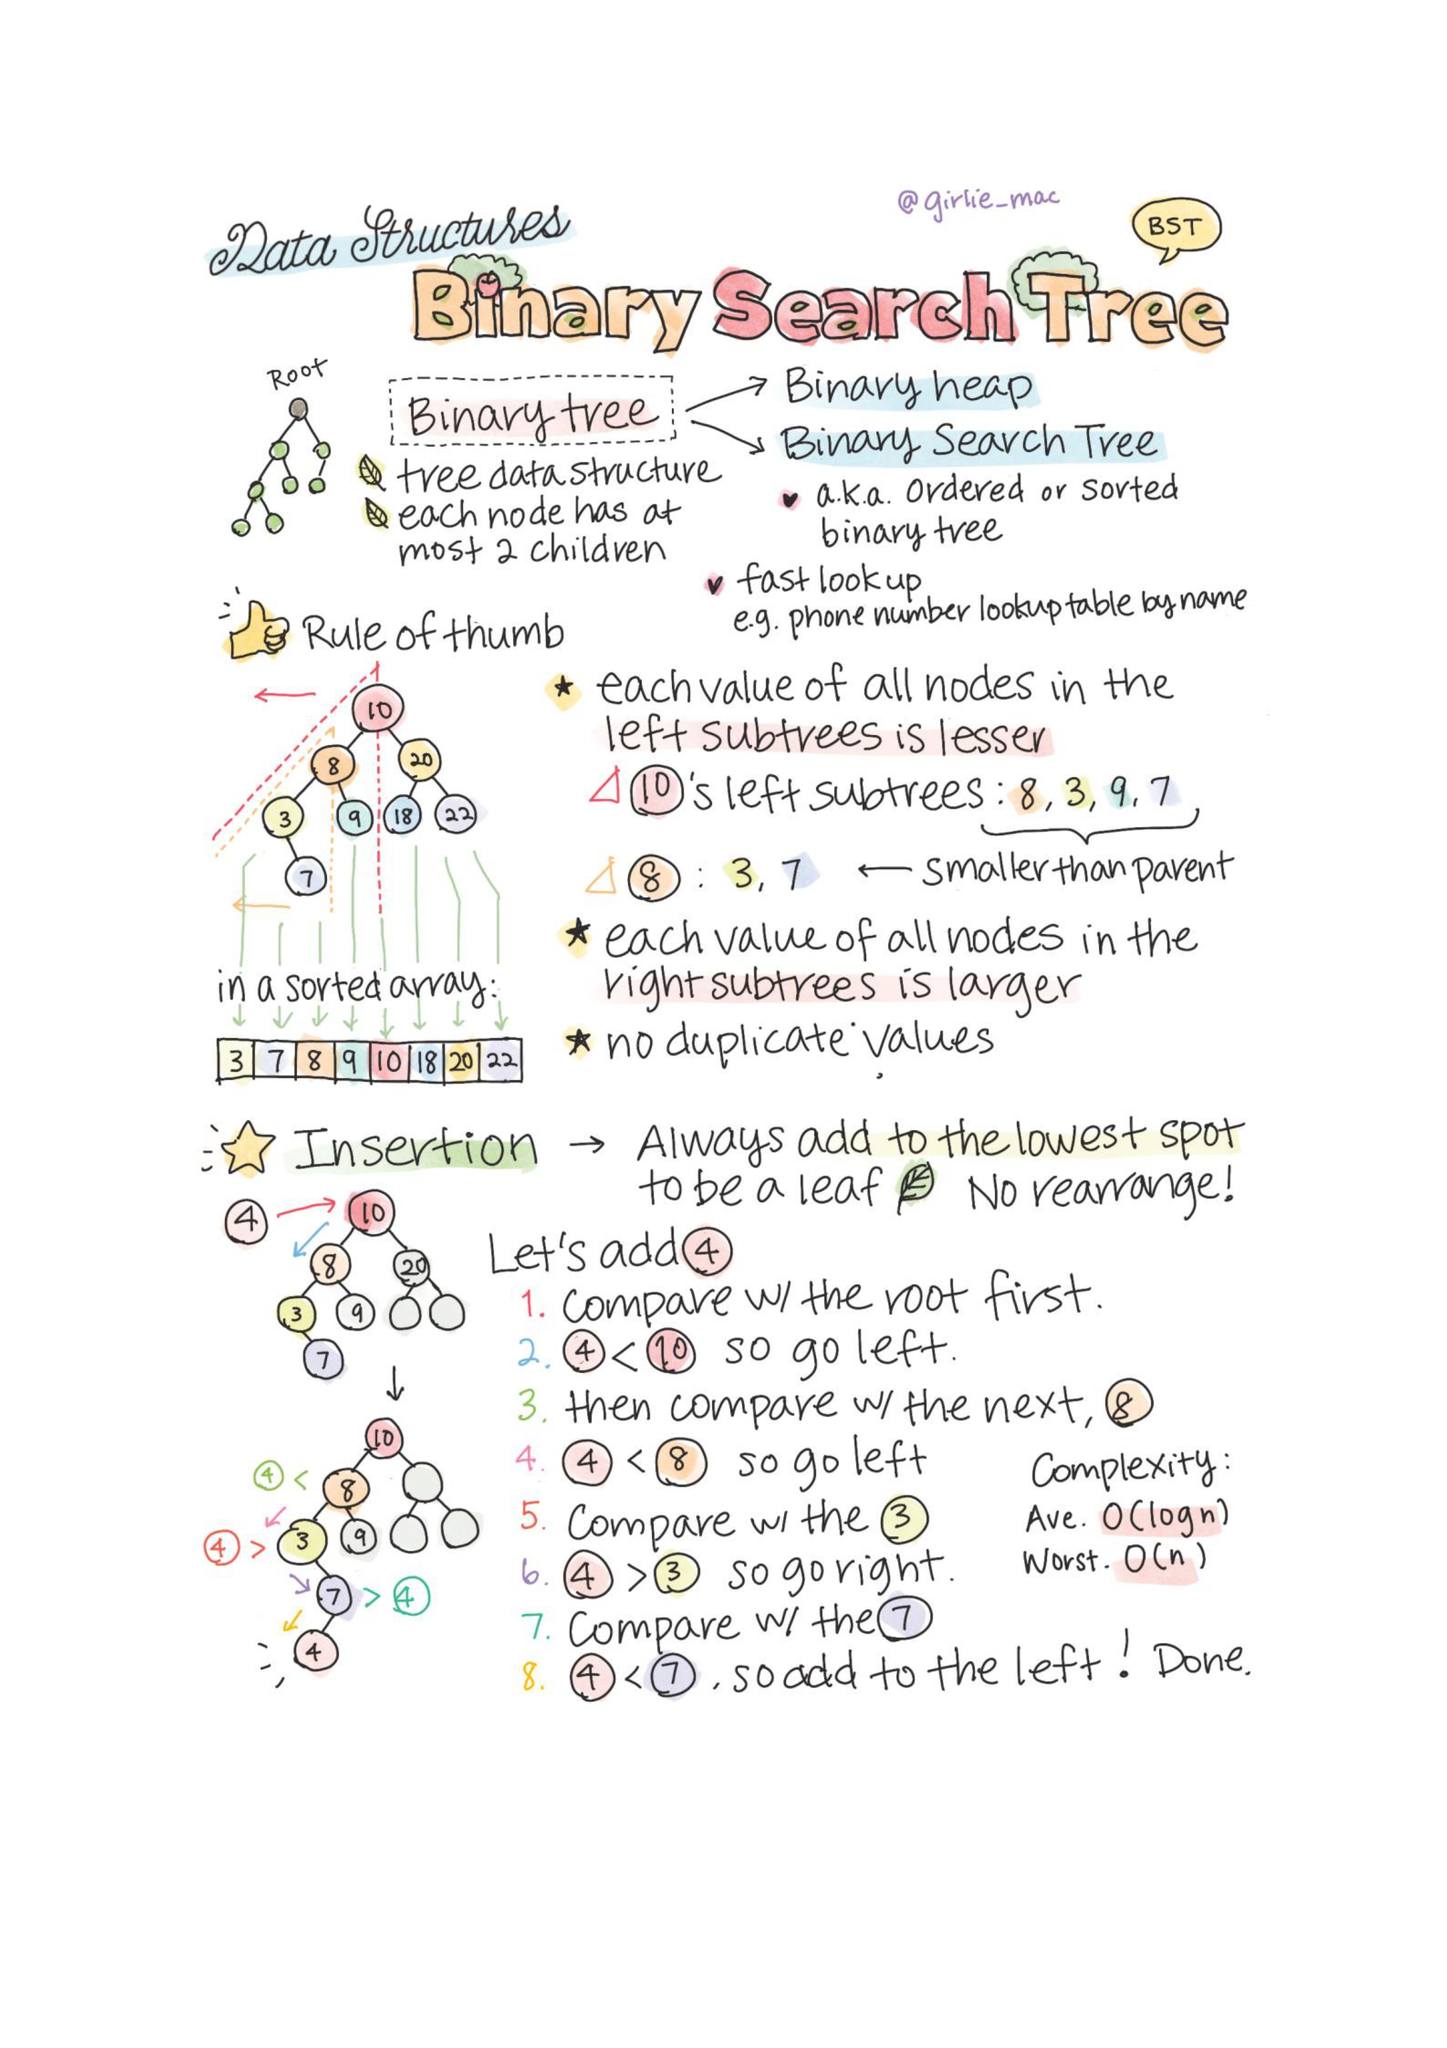 @girlie_mac
Data Structures
BST
Binary Search Tree
Root
Binary tree
tree data structure
each node has at
most 2 children
Binary heap
Binary Search Tree
a.k.a. Ordered or Sorted
binary tree
fast lookup
e.g. phone number lookup table by name
Rule of thumb
10
8 20
3 9 18 22
7
in a sorted array:
3 7 8 9 10 18 20 22
★ each value of all nodes in the
left subtrees is lesser
10's left subtrees: 8, 3, 9, 7
8 : 3, 7 ← smaller than parent
★ each value of all nodes in the
right subtrees is larger
★ no duplicate values
Insertion → Always add to the lowest spot
to be a leaf No rearrange!
4 → 10
8 20
3 9
7
10
4 < 8
4 > 3 9
7 > 4
4
Let's add 4
1. Compare w/ the root first.
2. 4 < 10 so go left.
3. then compare w/ the next, 8
4. 4 < 8 so go left
5. Compare w/ the 3
6. 4 > 3 so go right.
7. Compare w/ the 7
8. 4 < 7, so add to the left! Done.
Complexity:
Ave. O(logn)
Worst. O(n)